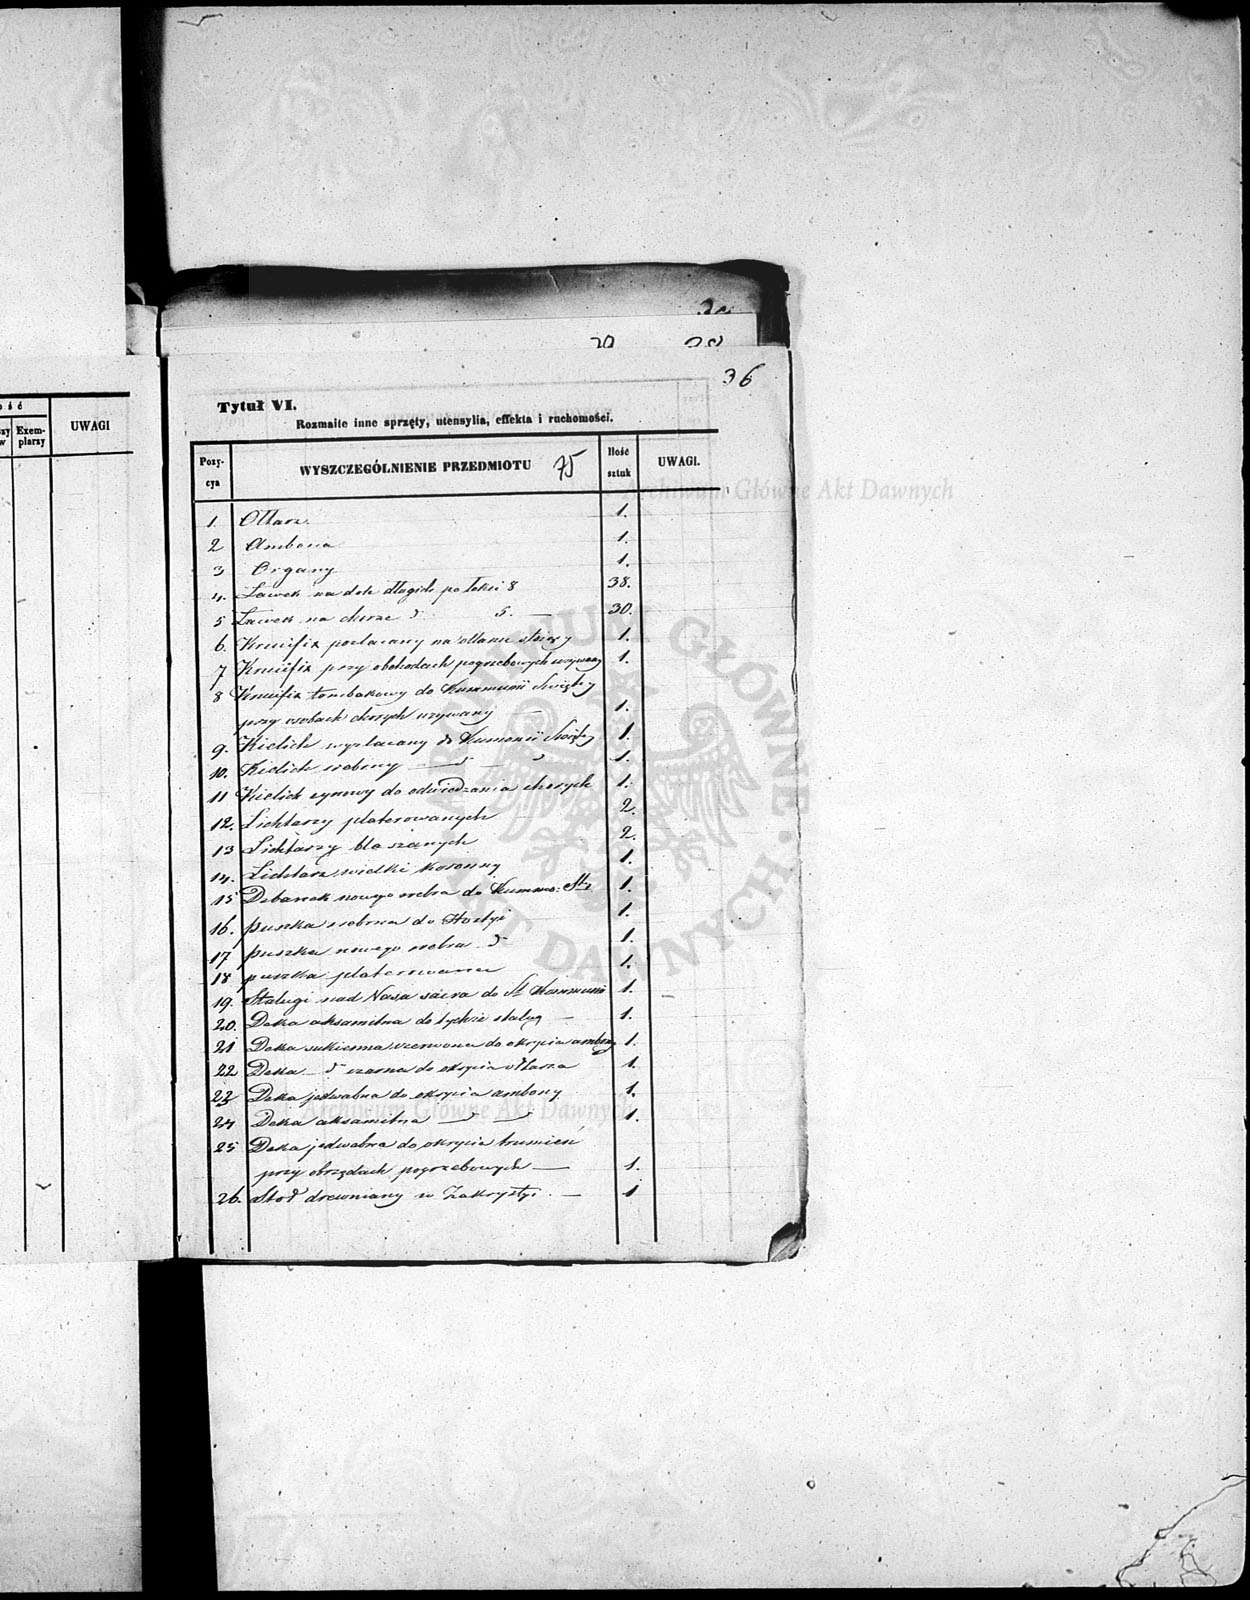 36
Tytuł VI.
Rozmaite inne sprzęty, utensylia, effekta i ruchomości.
ość
Exemplarzy
UWAGI
Pozycya
WYSZCZEGÓLNIENIE PRZEDMIOTU 75
Ilość sztuk
UWAGI.
1. Ołtarz. 1.
2 Ambona 1.
3 Organy 1.
4. Ławek na dole długich po łokci 8 38.
5 Ławek na chórze d 5. — 30.
6. Krucifix pozłacany na ołtarzu stojący 1.
7 Krucifix przy obchodach pogrzebowych używany 1.
8 Krucifix tombakowy do Kommunii Świętey
przy osobach chorych używany — 1.
9. Kielich wyzłacany do Kommunii Świętey 1.
10. Kielich srebrny — d — d 1.
11 Kielich cynowy do odwiedzania chorych 1.
12. Lichtarzy platerowanych 2.
13 Lichtarzy blaszanych 2.
14. Lichtarz wielki koronny 1.
15 Dzbanek nowego srebra do Kommu: Stey 1.
16. puszka srebrna do Hostyi 1.
17 puszka nowego srebra d 1.
18 puszka platerowana 1.
19. Stalugi nad Vasa sacra do St Kommunii 1.
20. Deka aksamitna do tychże stalug — 1.
21 Deka sukienna czerwona do okrycia ambony 1.
22 Deka — d czarna do okrycia ołtarza 1.
23 Deka jedwabna do okrycia ambony 1.
24 Deka aksamitna — d — d 1.
25 Deka jedwabna do okrycia trumien
przy obrzędach pogrzebowych — 1.
26. Stół drewniany w Zakrystyi. — 1
Archiwum Główne Akt Dawnych
ARCHIWUM GŁÓWNE AKT DAWNYCH
Archiwum Główne Akt Dawnych